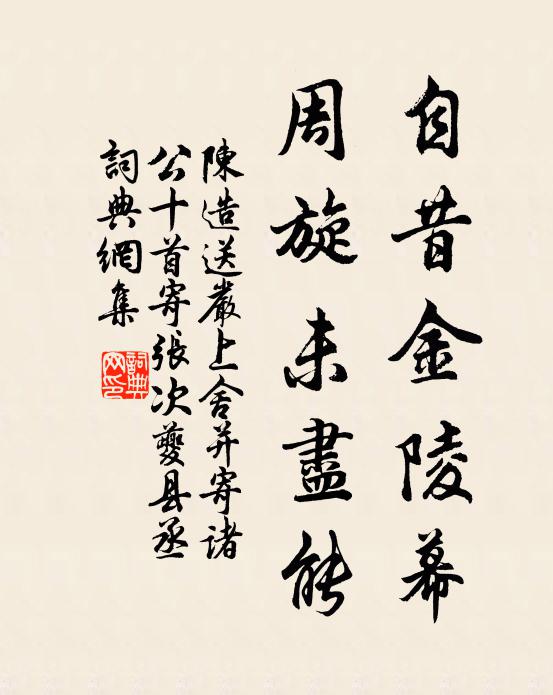 自昔金陵幕
周旋未盡能
陳造送嚴上舍并寄諸
公十首寄張次夔县丞
詞典網集
詞典網印